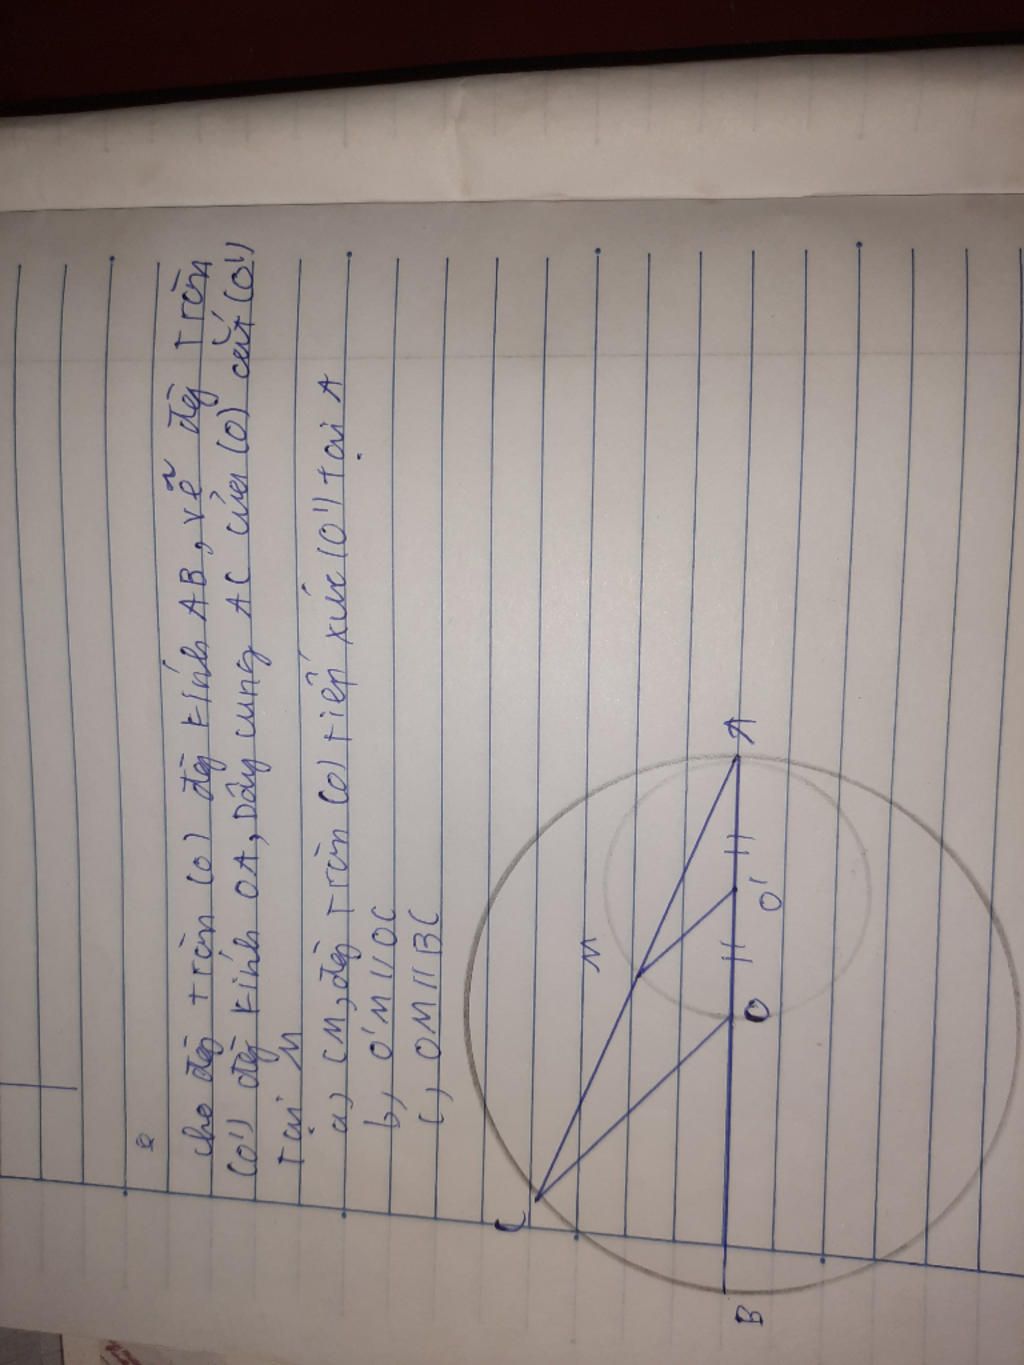 cho đg tròn (O) đg kính AB, vẽ đg tròn
(O') đg kính OA, Dây cung AC của (O) cắt (O')
Tại M
a) CM, đg Tròn (O) tiếp xúc (O') tại A
b) O'M // OC
c) OM // BC
C
M
A
O'
O
B